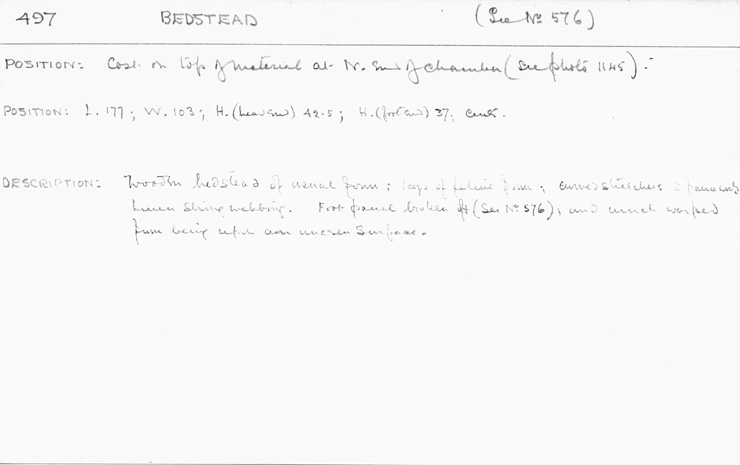 497 BEDSTEAD (See No 576)
POSITION: Cast on top of material at N. end of chamber (see photo 1145).-
POSITION: L. 177; W. 103; H. (head end) 42.5; H. (foot end) 37; cents.
DESCRIPTION: Wooden bedstead of usual form; legs of feline form; curved stretchers &
Linen string webbing. Foot panel broken off (See No 576), and much warped
from being upon an uneven surface.